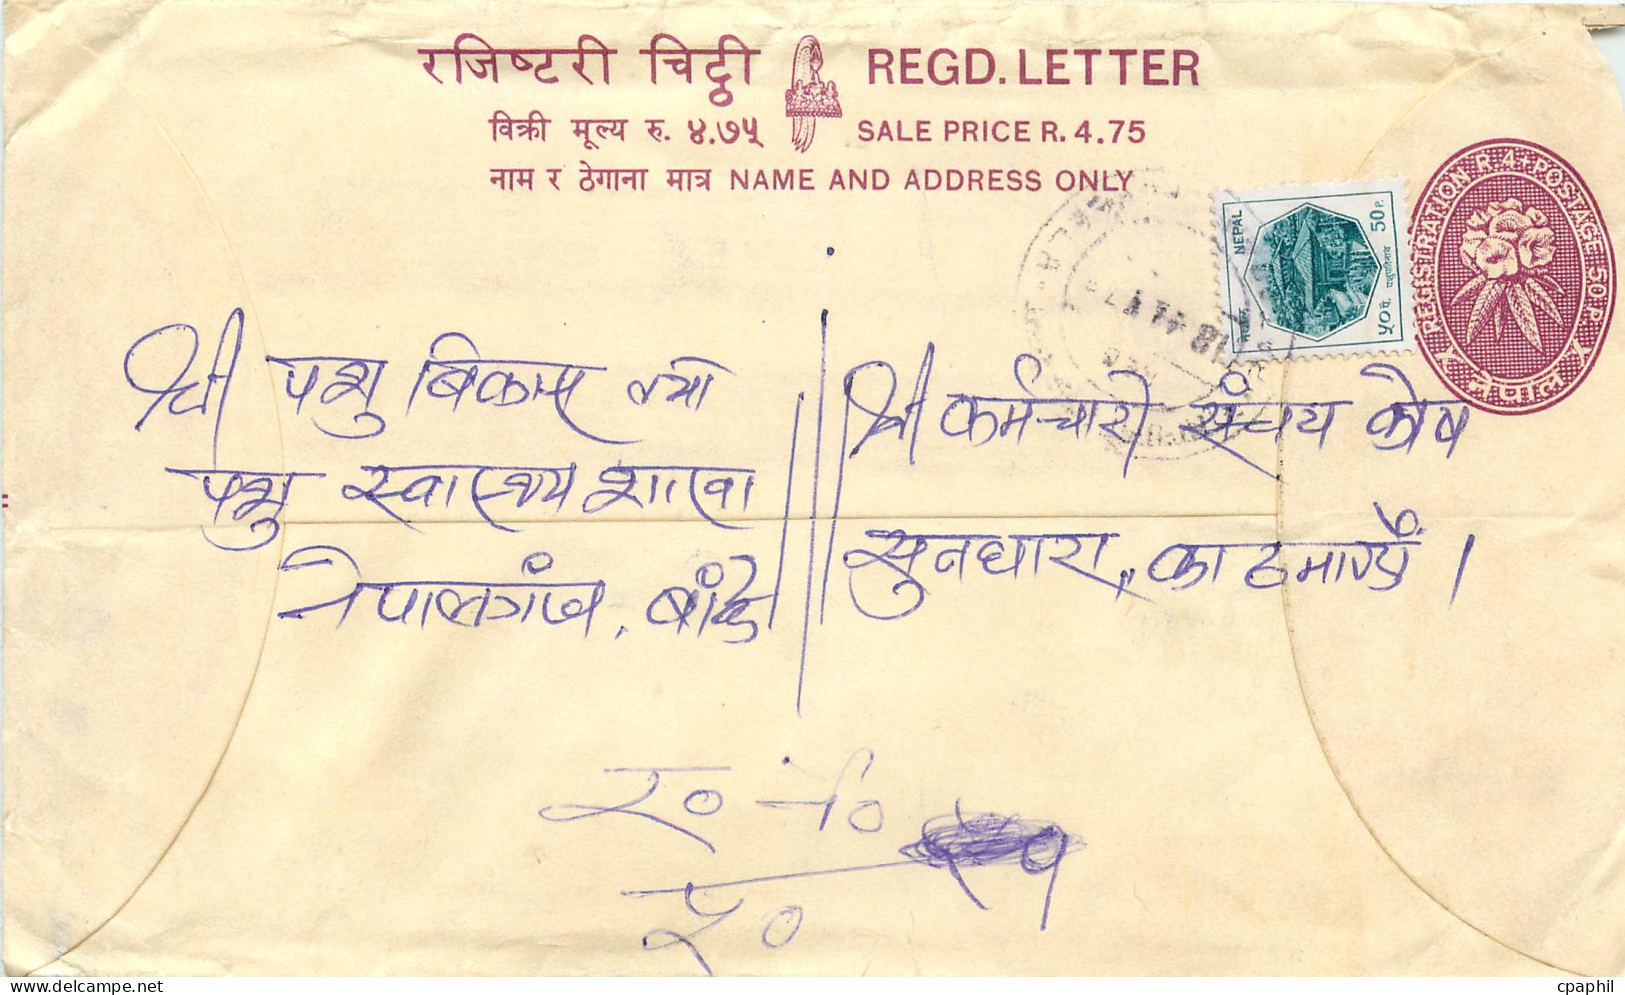 रजिष्टरी चिट्ठी REGD. LETTER
विक्री मूल्य रु. ४.७५ SALE PRICE R. 4.75
नाम र ठेगाना मात्र NAME AND ADDRESS ONLY
REGISTRATION R 4+POSTAGE 50 P.
नेपाल
NEPAL 50 P.
नेपाल ५० पै. पशुपतिनाथ
श्री पशु बिकास तथा
पशु स्वास्थ्य शाखा
नेपालगंज, बाँके
श्री कर्मचारी संचय कोष
सुनधारा, काठमाण्डौं ।
र० नं०
cpaphil